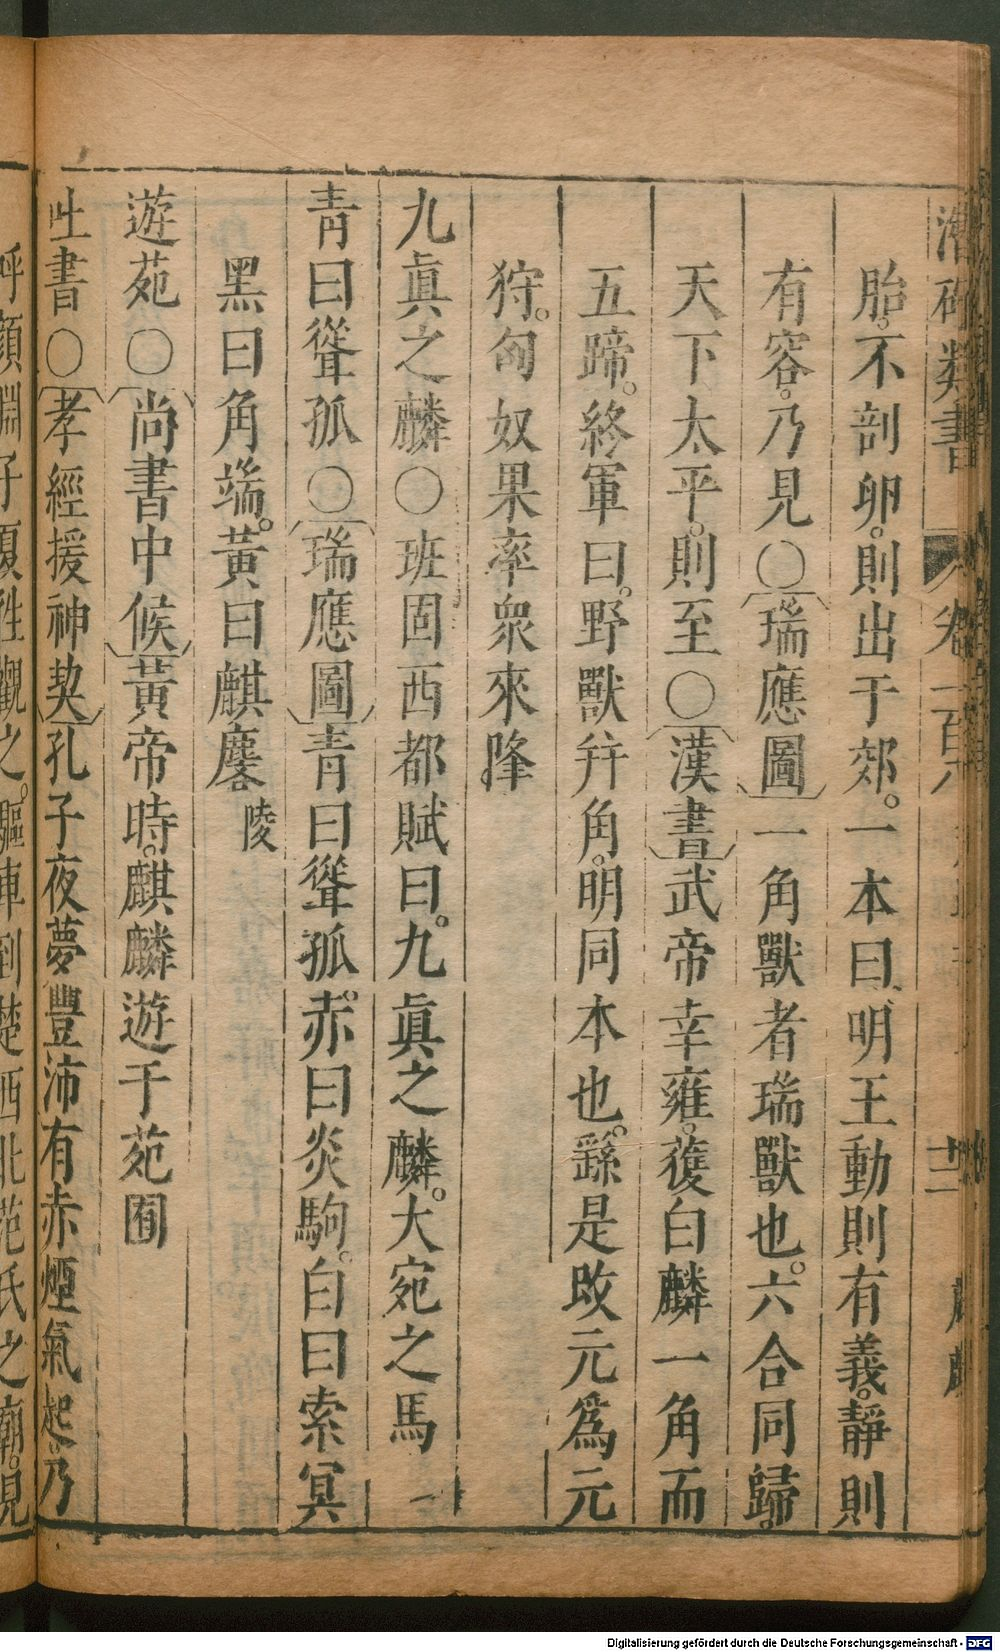 潛確類書 卷一百八 十二
胎不剖卵則出于郊一本曰明王動則有義靜則
有容乃見〇瑞應圖一角獸者瑞獸也六合同歸
天下太平則至〇漢書武帝幸雍獲白麟一角而
五蹄終軍曰野獸幷角明同本也繇是改元爲元
狩匈奴果率衆來降
九眞之麟〇班固西都賦曰九眞之麟大宛之馬
青曰聳孤〇瑞應圖青曰聳孤赤曰炎駒白曰索冥
黑曰角端黃曰麒麐陵
遊苑〇尚書中候黃帝時麒麟遊于苑囿
吐書〇孝經援神契孔子夜夢豐沛有赤煙氣起乃
呼顏淵子夏往觀之驅車到楚西北范氏之廟見
Digitalisierung gefördert durch die Deutsche Forschungsgemeinschaft - DFG